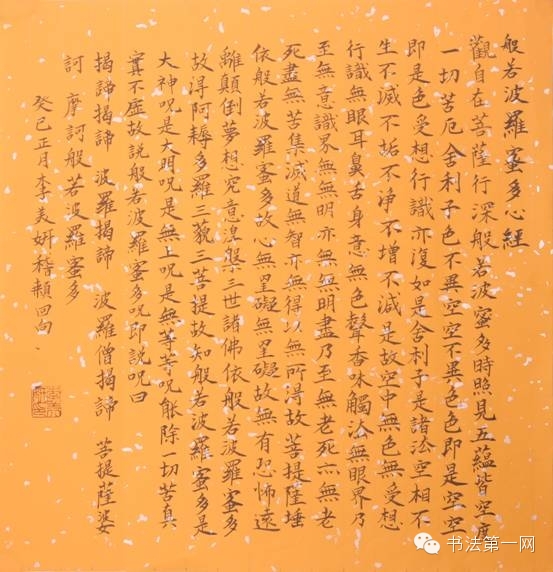 般若波羅蜜多心經
觀自在菩薩行深般若波蜜多時照見五蘊皆空度
一切苦厄舍利子色不異空空不異色色即是空空
即是色受想行識亦復如是舍利子是諸法空相不
生不滅不垢不净不增不減是故空中無色無受想
行識無眼耳鼻舌身意無色聲香味觸法無眼界乃
至無意識界無無明亦無無明盡乃至無老死亦無老
死盡無苦集滅道無智亦無得以無所得故菩提薩埵
依般若波羅蜜多故心無罣礙無罣礙故無有恐怖遠
離顛倒夢想究竟涅槃三世諸佛依般若波羅蜜多
故得阿耨多羅三藐三菩提故知般若波羅蜜多是
大神呪是大明呪是無上呪是無等等呪能除一切苦真
實不虛故説般若波羅蜜多呪即説呪曰
揭諦揭諦 波羅揭諦 波羅僧揭諦 菩提薩婆
訶 摩訶般若波羅蜜多
癸巳正月李美妍稽顙回向
书法第一网